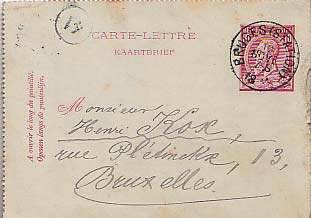 CARTE-LETTRE
KAARTBRIEF
A ouvrir le long du pointillé.
Openen langs de puntenlijn.
Monsieur
Henri Kox,
rue Plétinckx, 13,
Bruxelles.